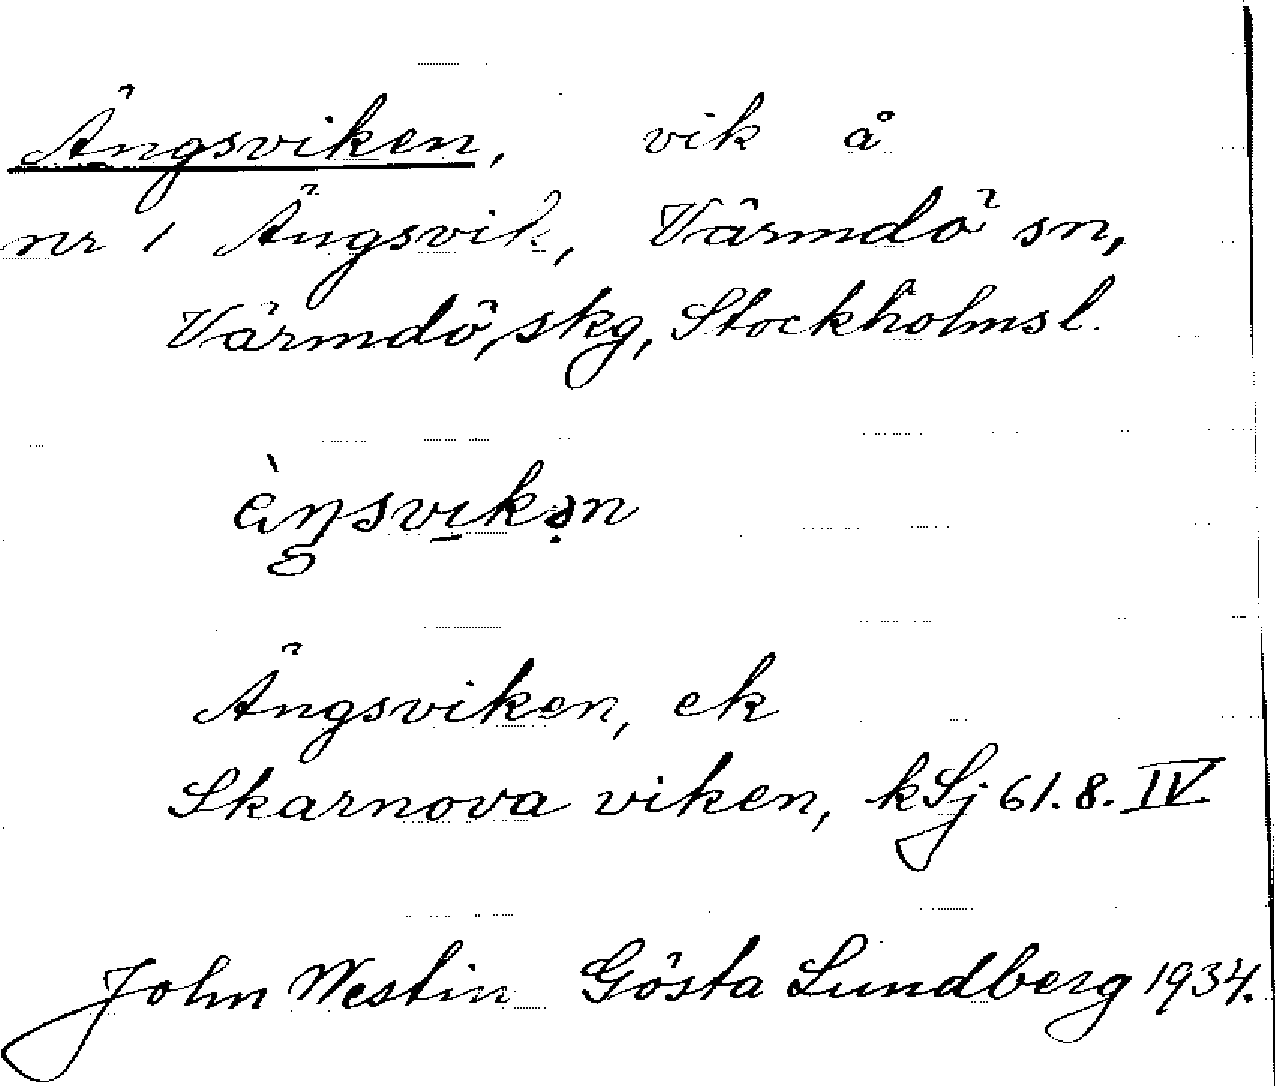 Ängsviken, vik å
nr 1 Ängsvik, Värmdö sn,
Värmdö, skg, Stockholms l.
Ängsviken, ek
Skarnova viken, kSj 61.8.IV
John Westin Gösta Lundberg 1934.